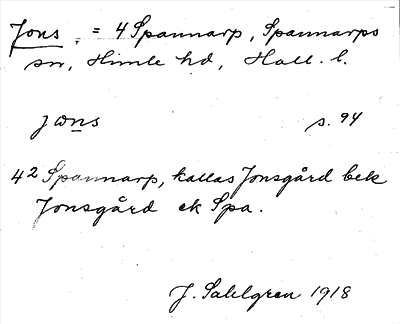 Jons = 4 Spannarp, Spannarps
sn, Himle hd, Hall. l.
jωns s. 94
4² Spannarp, kallas Jonsgård bek
Jonsgård ek Spa.
J. Sahlgren 1918